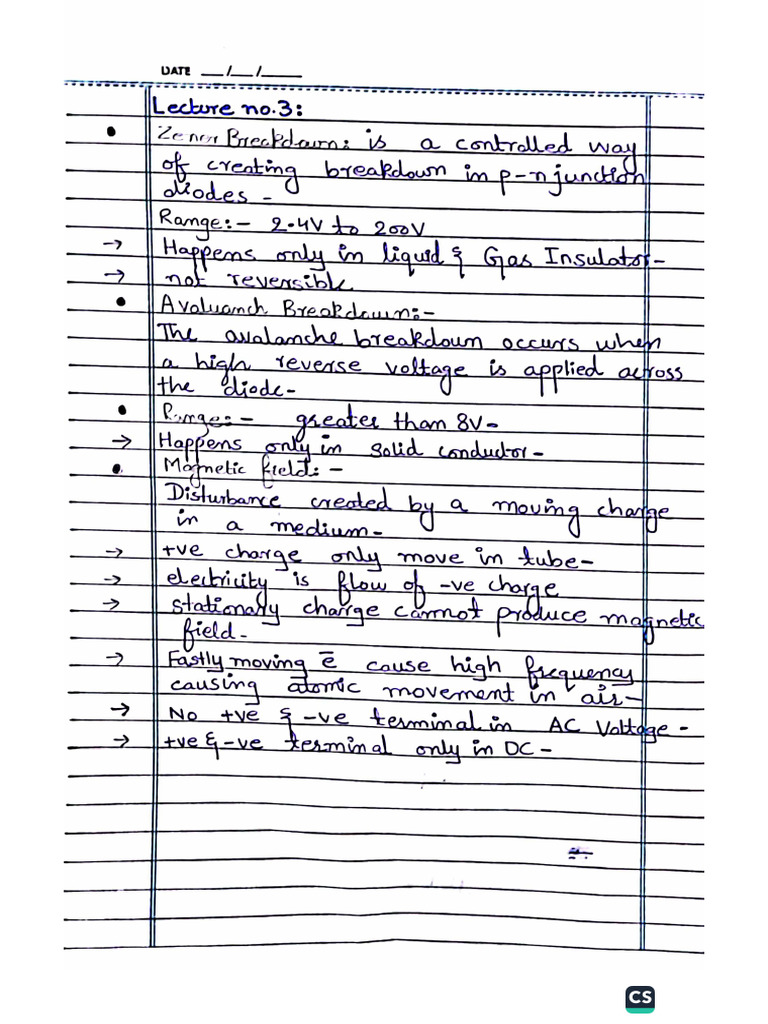 DATE __/__/____
Lecture no.3:
Zener Breakdown: is a controlled way
of creating breakdown in p-n junction
diodes -
Range:- 2.4V to 200V
→ Happens only in liquid & Gas Insulator-
→ not reversible
• Avaluanch Breakdown:-
The avalanche breakdown occurs when
a high reverse voltage is applied across
the diode-
• Range:- greater than 8V-
→ Happens only in solid conductor-
• Magnetic field:-
Disturbance created by a moving charge
in a medium-
→ +ve charge only move in tube-
→ electricity is flow of -ve charge
→ stationary charge cannot produce magnetic
field-
→ Fastly moving ē cause high frequency
causing atomic movement in air-
→ No +ve & -ve terminal in AC Voltage-
→ +ve & -ve terminal only in DC-
CS